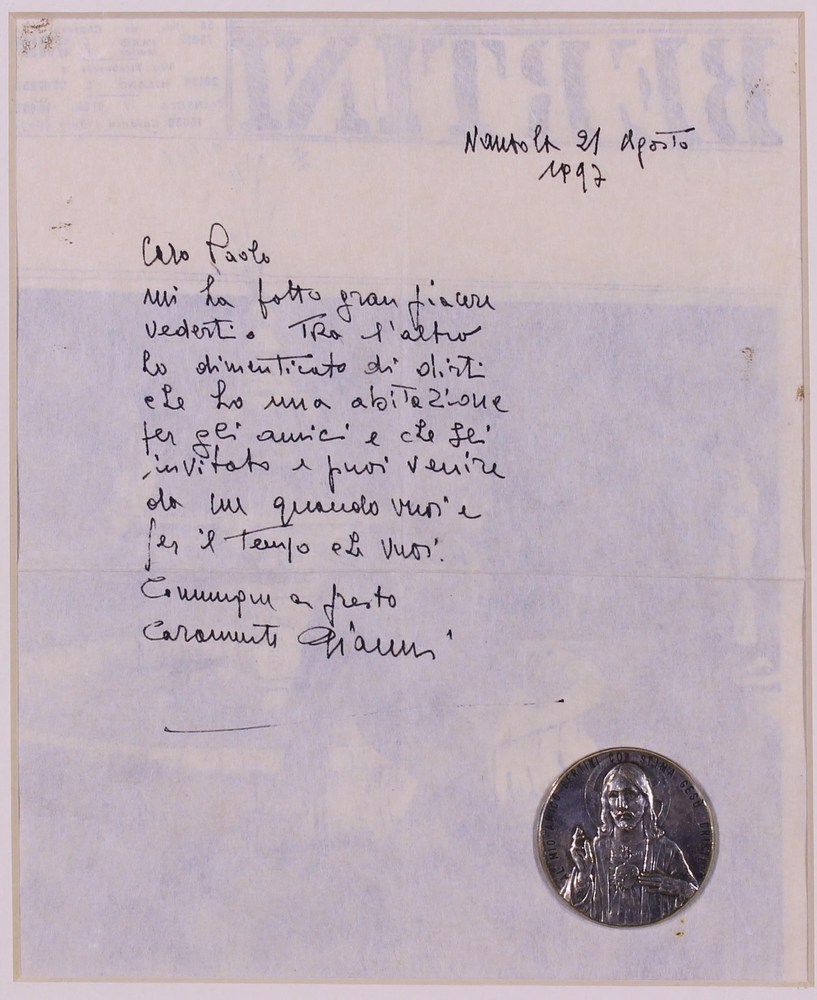 BERTINI
21 Agosto
1997
Caro Paolo
mi ha fatto gran piacere
vederti. Tra l'altro
ho dimenticato di dirti
che ho una abitazione
per gli amici e che sei
invitato e puoi venire
da me quando vuoi e
per il tempo che vuoi.
Comunque a presto
Caramente Gianni
AL MIO AMICO BERTINI CON STIMA GESÙ